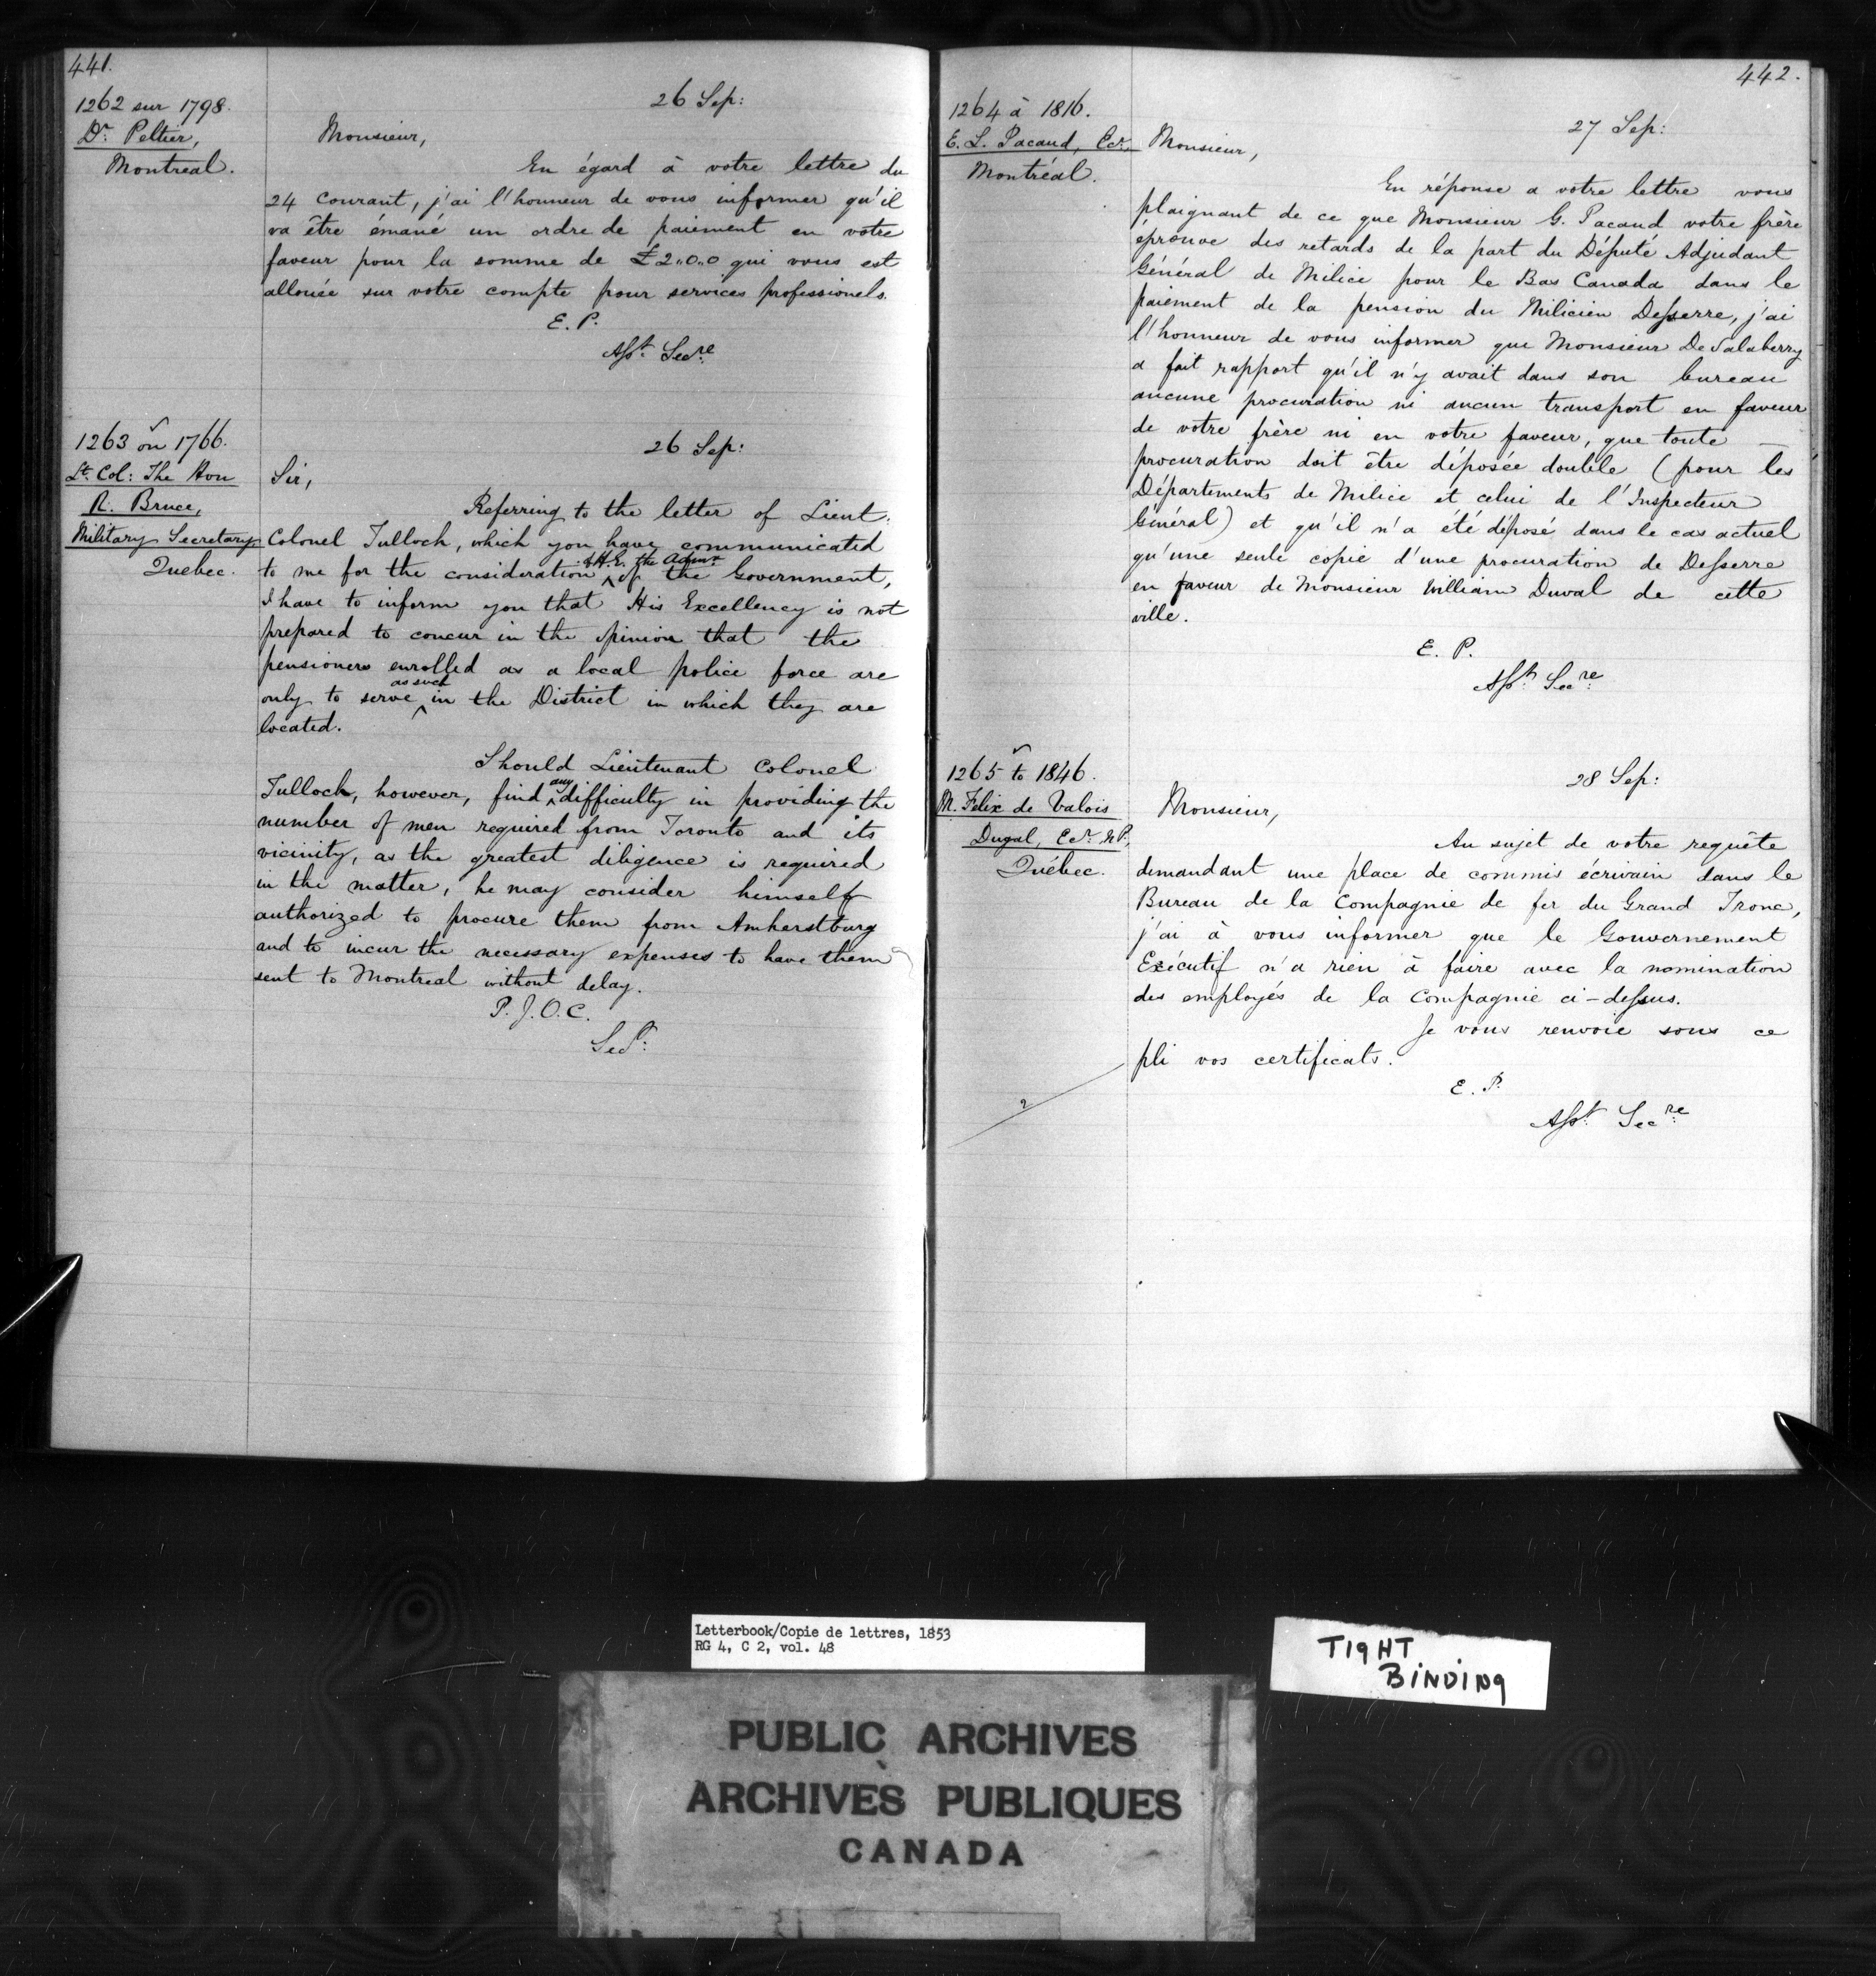 441.
1262 sur 1798.
Dr. Peltier,
Montreal.
26 Sep:
Monsieur,
En égard à votre lettre du
24 courant, j'ai l'honneur de vous informer qu'il
va être émané un ordre de paiement en votre
faveur pour la somme de £2.,0.,0 qui vous est
allouée sur votre compte pour services professionels.
E. P.
Asst. Secre.
1263 on 1766.
Lt. Col: The Hon
R. Bruce,
Military Secretary
Quebec.
26 Sep:
Sir,
Referring to the letter of Lieut.
Colonel Tulloch, which you have communicated
to me for the consideration of H.E. the Admr. of the Government,
I have to inform you that His Excellency is not
prepared to concur in the opinion that the
pensioners enrolled as a local police force are
only to serve as such in the District in which they are
located.
Should Lieutenant Colonel
Tulloch, however, find any difficulty in providing the
number of men required from Toronto and its
vicinity, as the greatest diligence is required
in the matter, he may consider himself
authorized to procure them from Amherstburg
and to incur the necessary expenses to have them
sent to Montreal without delay.
P. J. O. C.
Secy.
442.
1264 à 1816.
E. L. Pacaud, Ecr.
Montréal.
27 Sep:
Monsieur,
En réponse a votre lettre vous
plaignant de ce que Monsieur G. Pacaud votre frère
éprouve des retards de la part du Député Adjudant
Général de Milice pour le Bas Canada dans le
paiement de la pension du Milicien Desserre, j'ai
l'honneur de vous informer que Monsieur De Salaberry
a fait rapport qu'il n'y avait dans son bureau
aucune procuration ni aucun transport en faveur
de votre frère ni en votre faveur, que toute
procuration doit être déposée double (pour les
Départements de Milice et celui de l'Inspecteur
Général) et qu'il n'a été déposé dans le cas actuel
qu'une seule copie d'une procuration de Desserre
en faveur de Monsieur William Duval de cette
ville.
E. P.
Asst. Secre.
1265 to 1846.
M. Felix de Valois
Dugal, Ecr. N.P.
Québec.
28 Sep:
Monsieur,
Au sujet de votre requête
demandant une place de commis écrivain dans le
Bureau de la Compagnie de fer du Grand Tronc,
j'ai à vous informer que le Gouvernement
Exécutif n'a rien à faire avec la nomination
des employés de la Compagnie ci-dessus.
Je vous renvoie sous ce
pli vos certificats.
E. P.
Asst. Secre.
Letterbook/Copie de lettres, 1853
RG 4, C 2, vol. 48
TIGHT
BINDING
PUBLIC ARCHIVES
ARCHIVES PUBLIQUES
CANADA